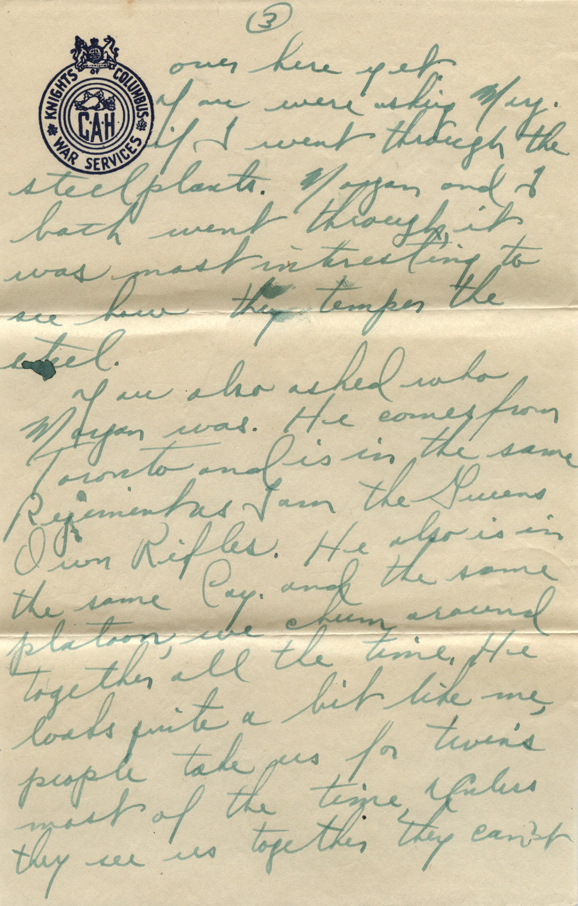 3
KNIGHTS OF COLUMBUS
C·A·H
WAR SERVICES
over here yet
You were asking Mary.
if I went through the
steel plants. Morgan and I
both went through, it
was most interesting to
see how they temper the
steel.
You also asked who
Morgan was. He comes from
Toronto and is in the same
Regiment as I am the Queens
Own Rifles. He also is in
the same Coy. and the same
platoon, we chum around
together all the time. He
looks quite a bit like me,
people take us for twin's
most of the time, unless
they see us together they can't